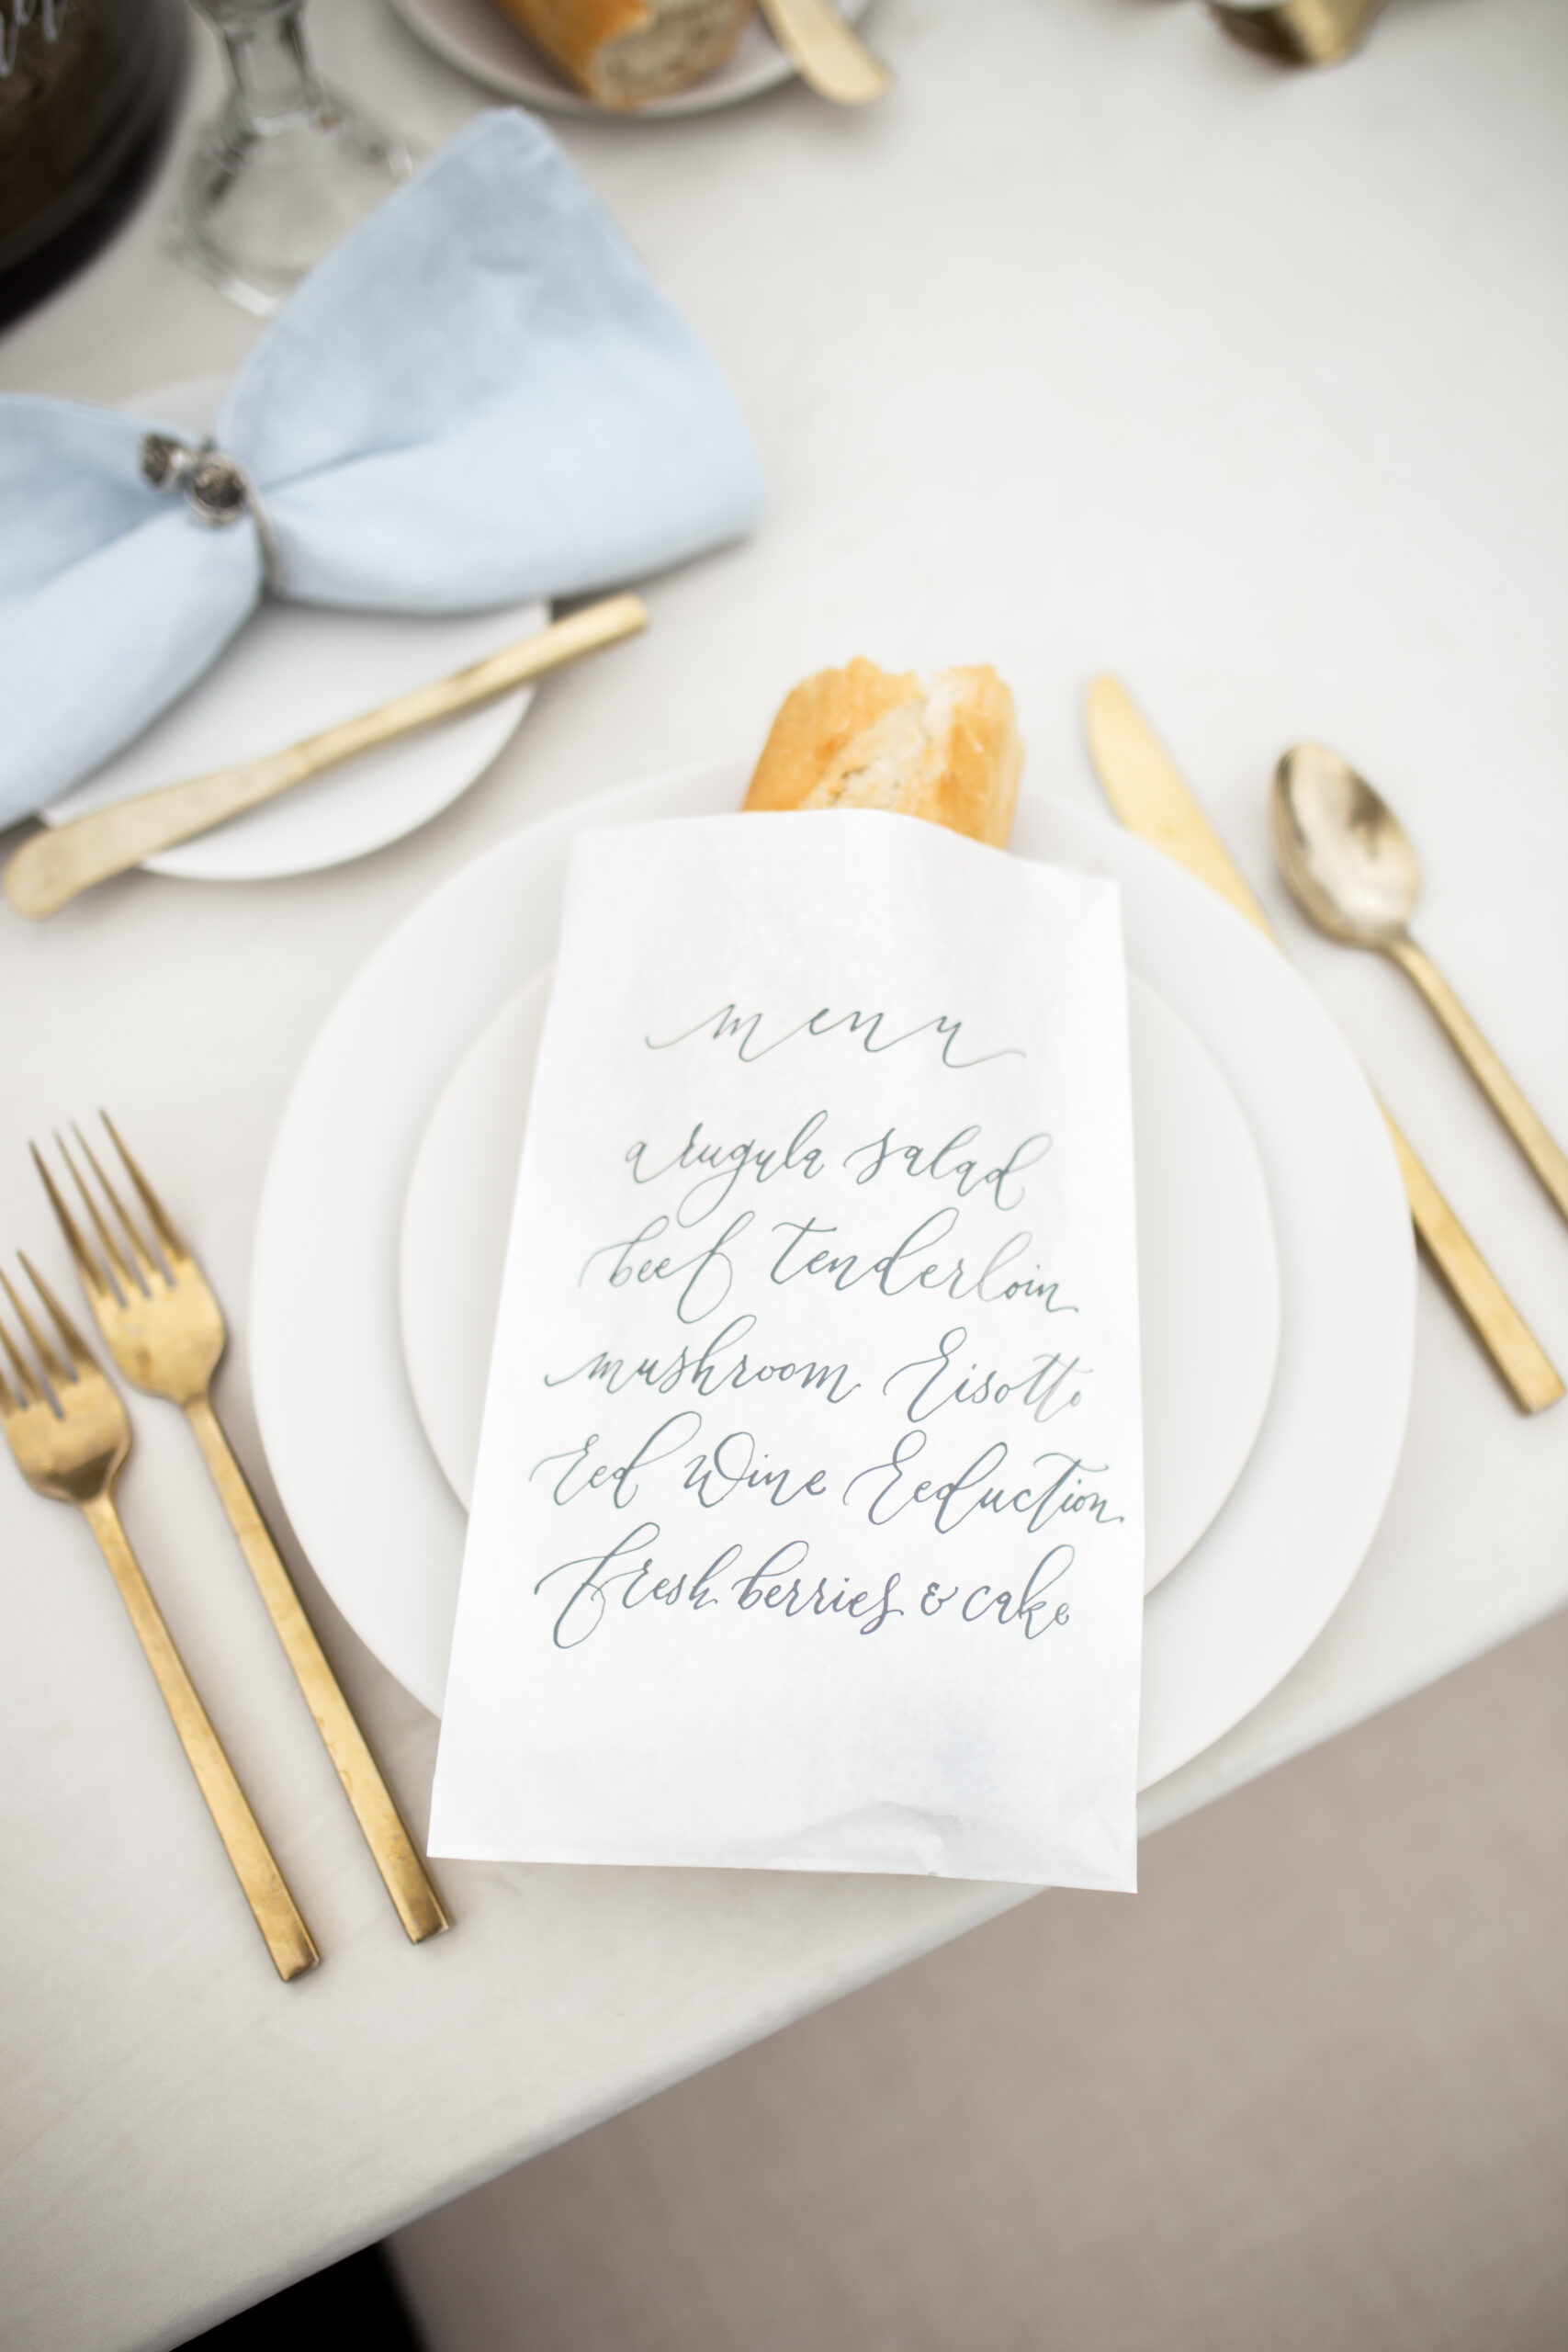 menu
arugula salad
beef tenderloin
mushroom Risotto
Red Wine Reduction
fresh berries & cake